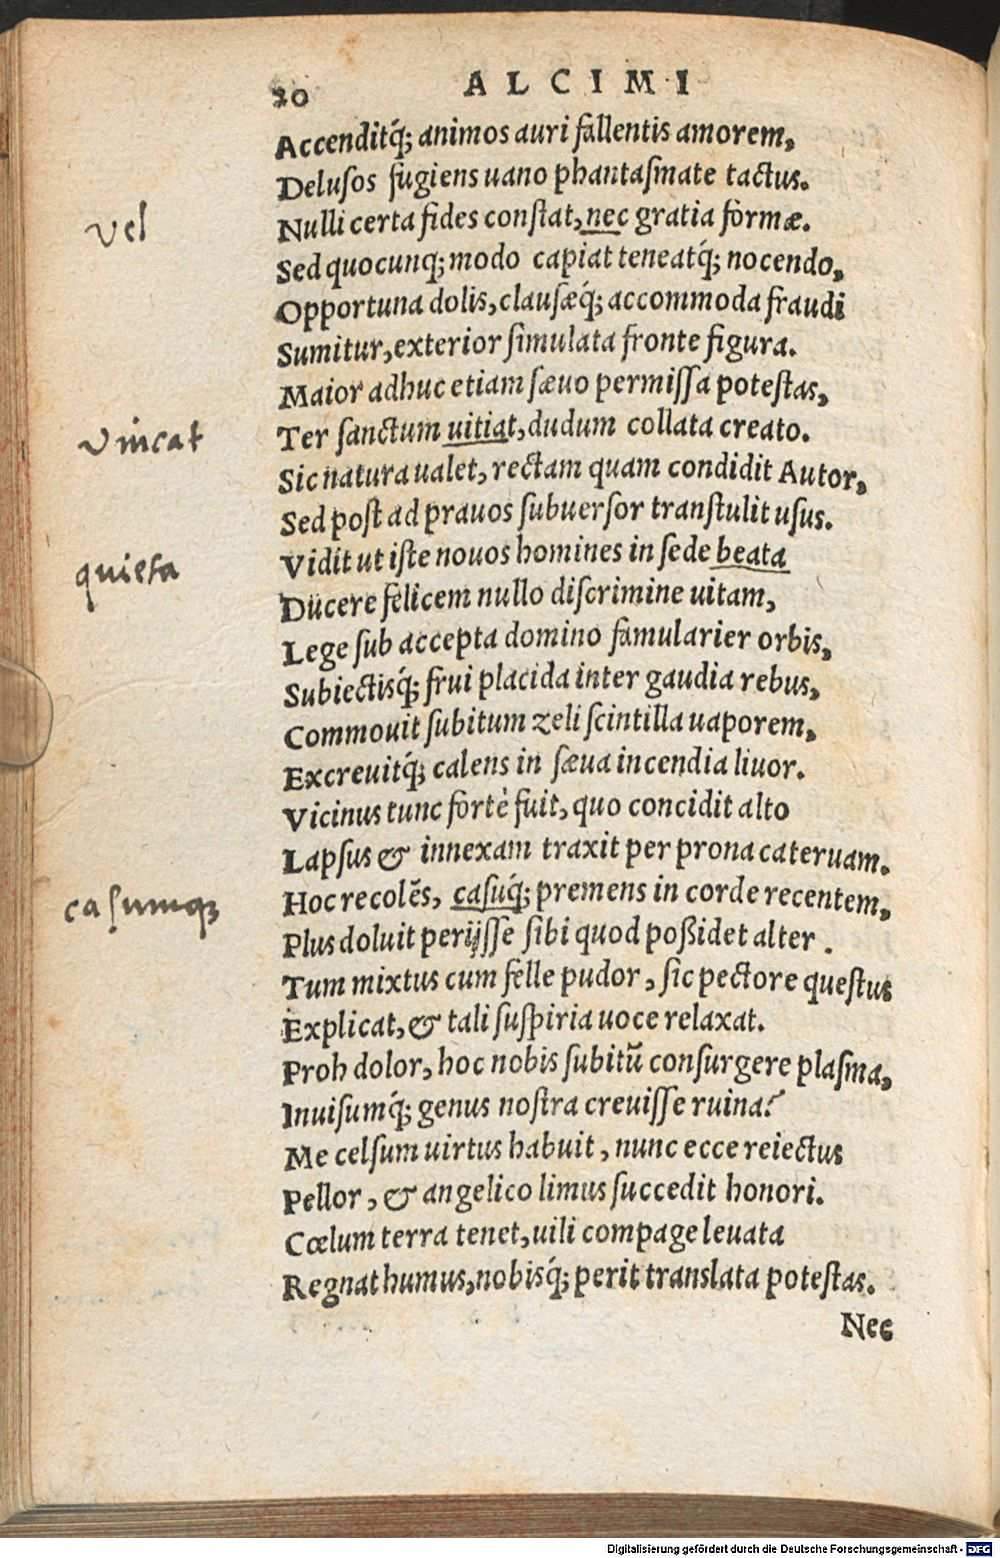 20 ALCIMI
Accenditq́; animos auri fallentis amorem,
Delusos fugiens uano phantasmate tactus.
vel
Nulli certa fides constat, nec gratia formæ.
Sed quocunq; modo capiat teneatq́; nocendo,
Opportuna dolis, clausæq́; accommoda fraudi
Sumitur, exterior simulata fronte figura.
Maior adhuc etiam sæuo permissa potestas,
vincat
Ter sanctum uitiat, dudum collata creato.
Sic natura ualet, rectam quam condidit Autor,
Sed post ad prauos subuersor transtulit usus.
quieta
Vidit ut iste nouos homines in sede beata
Ducere felicem nullo discrimine uitam,
Lege sub accepta domino famularier orbis,
Subiectisq́; frui placida inter gaudia rebus,
Commouit subitum zeli scintilla uaporem,
Excreuitq́; calens in sæua incendia liuor.
Vicinus tunc fortè fuit, quo concidit alto
Lapsus & innexam traxit per prona cateruam.
casumq;
Hoc recolẽs, casuq́; premens in corde recentem,
Plus doluit perijsse sibi quod poßidet alter.
Tum mixtus cum felle pudor, sic pectore questus
Explicat, & tali suspiria uoce relaxat.
Proh dolor, hoc nobis subitũ consurgere plasma,
Inuisumq́; genus nostra creuisse ruina?
Me celsum uirtus habuit, nunc ecce reiectus
Pellor, & angelico limus succedit honori.
Cœlum terra tenet, uili compage leuata
Regnat humus, nobisq́; perit translata potestas.
Nec
Digitalisierung gefördert durch die Deutsche Forschungsgemeinschaft - DFG